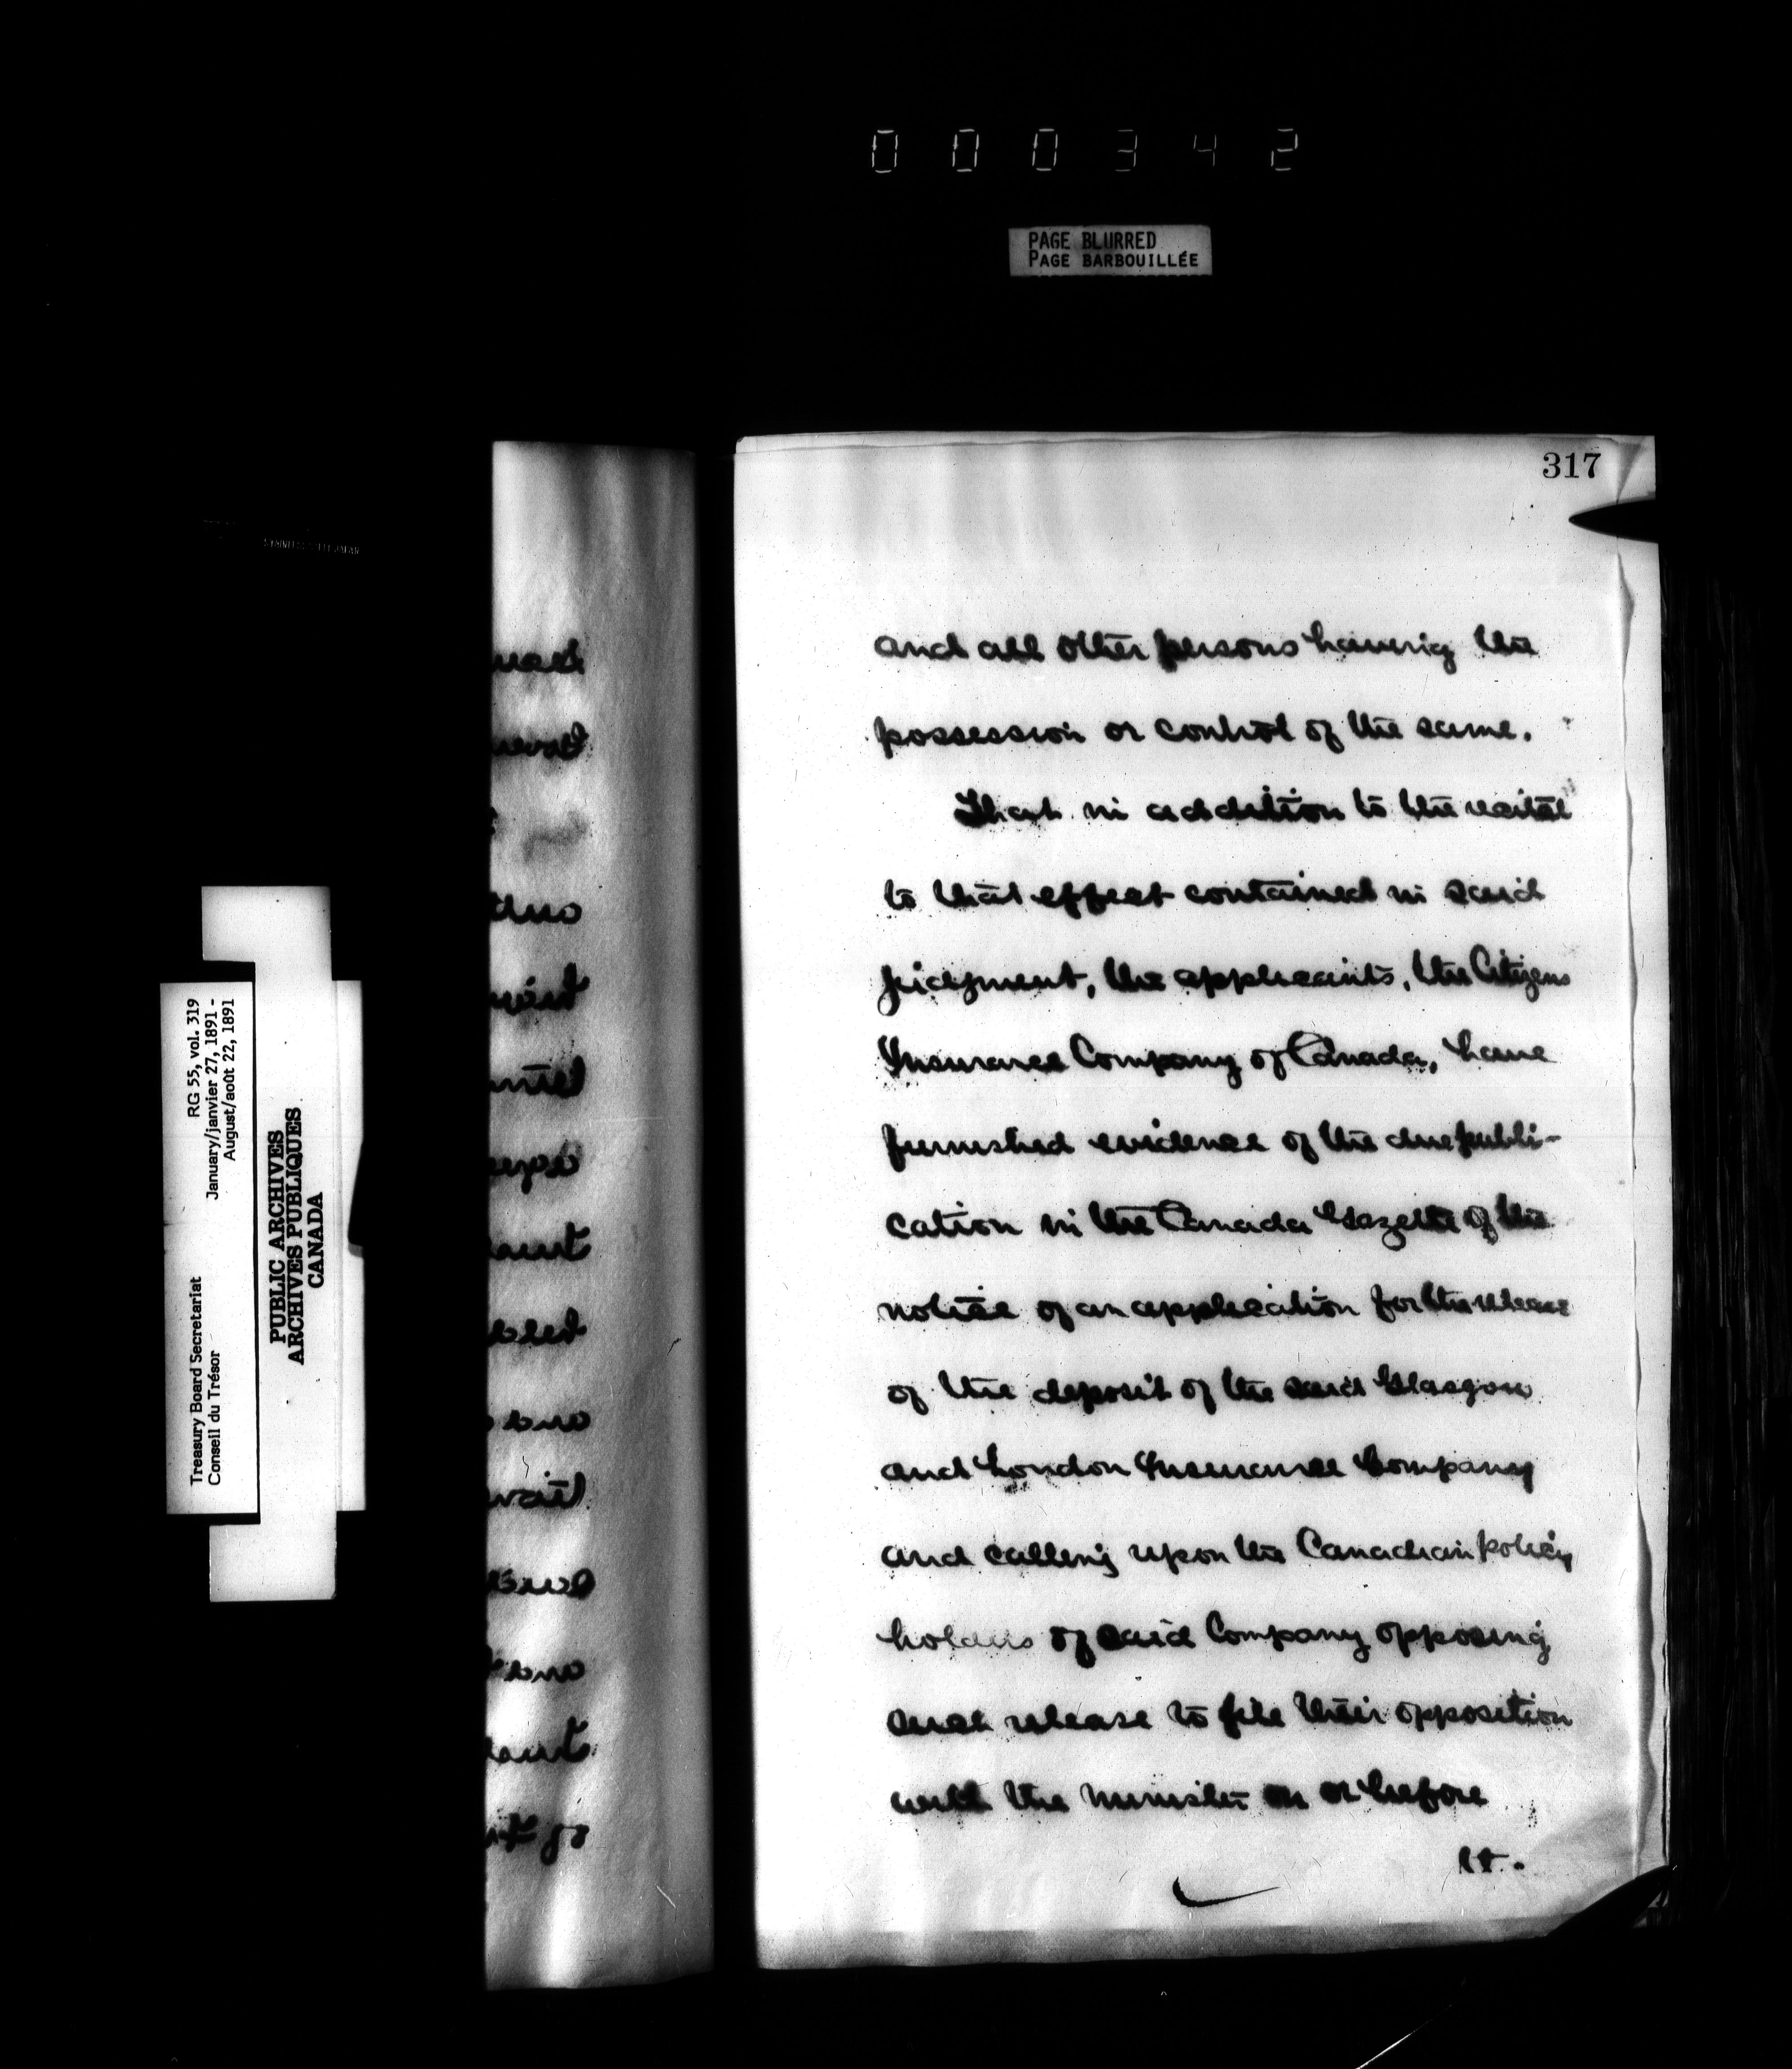 000342
PAGE BLURRED
PAGE BARBOUILLÉE
317
and all other persons having the
possession or control of the same.
That in addition to the recital
to that effect contained in said
judgment, the applicants, the Citizens
Insurance Company of Canada, have
furnished evidence of the due publi-
cation in the Canada Gazette of the
notice of an application for the release
of the deposit of the said Glasgow
and London Insurance Company
and calling upon the Canadian policy
holders of said Company opposing
such release to file their opposition
with the Minister on or before
Treasury Board Secretariat RG 55, vol. 319
Conseil du Trésor January/janvier 27, 1891 -
August/août 22, 1891
PUBLIC ARCHIVES
ARCHIVES PUBLIQUES
CANADA